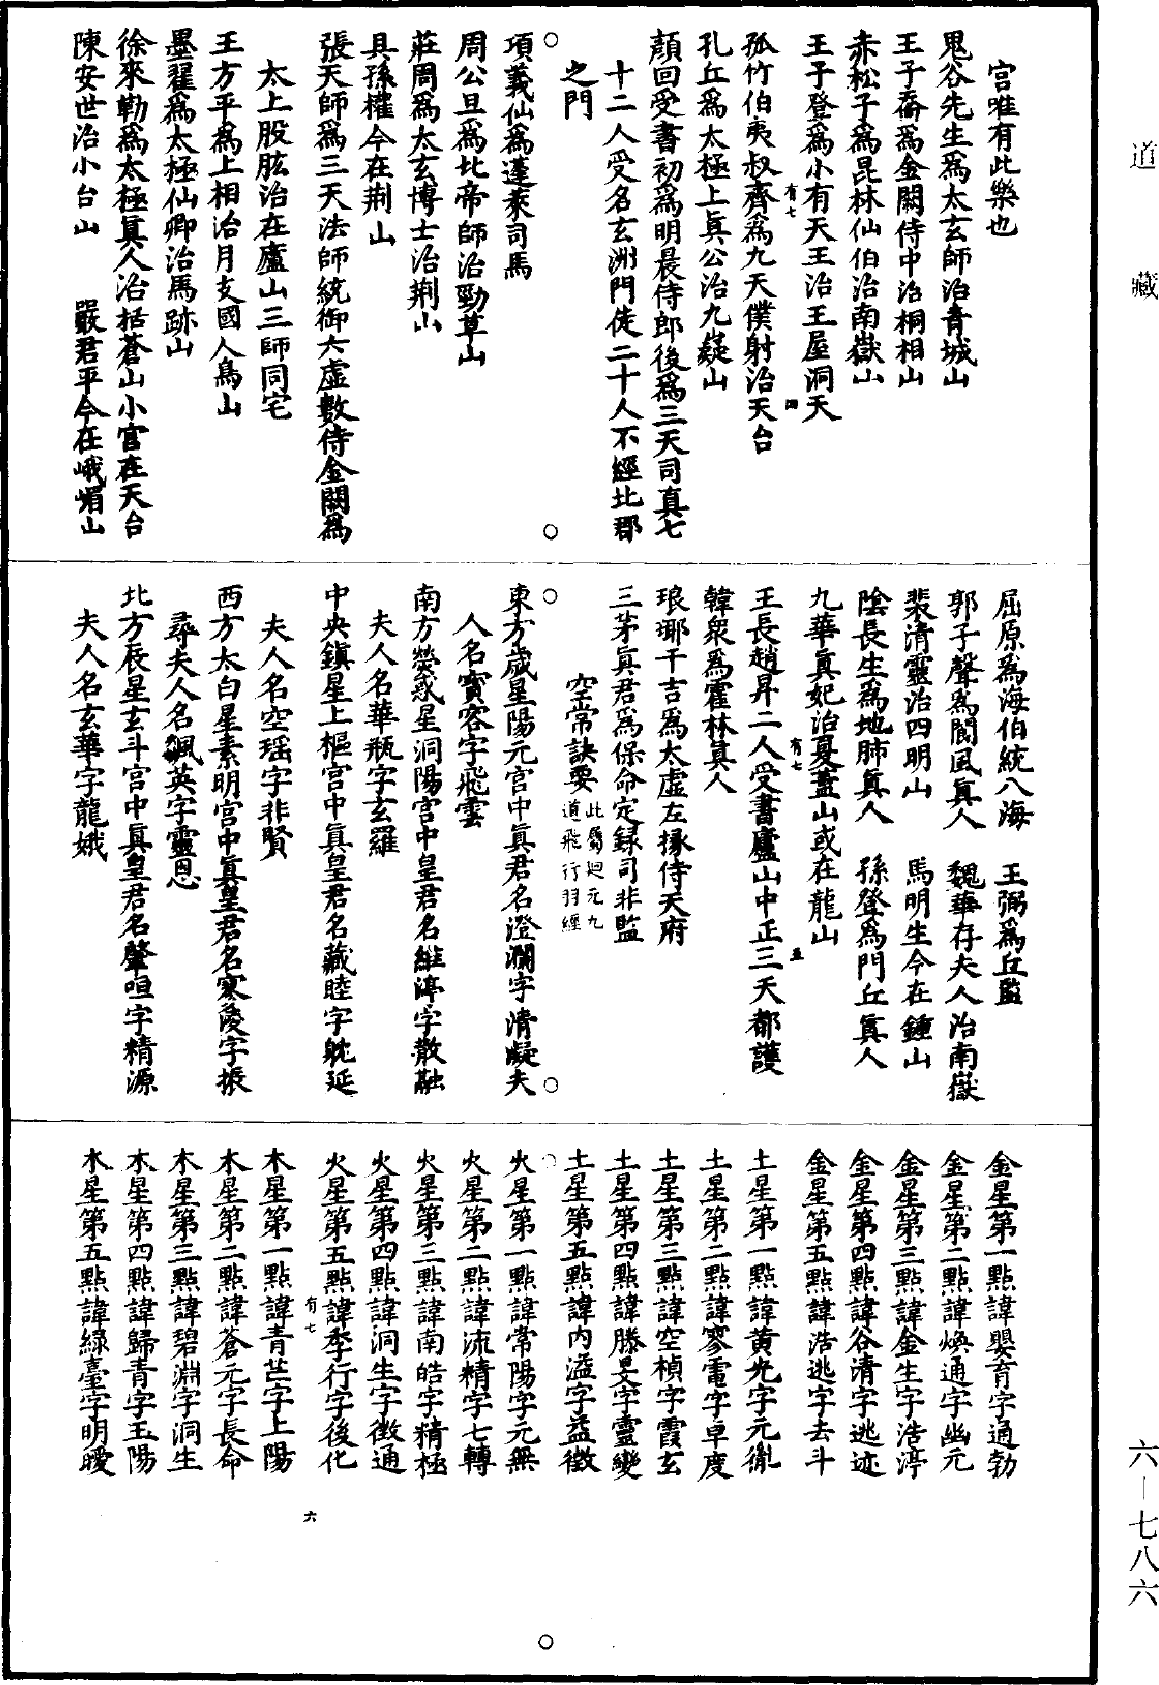 道藏
宫唯有此樂也
鬼谷先生爲太玄師治青城山
王子喬爲金闕侍中治桐柏山
赤松子爲昆林仙伯治南嶽山
王子登爲小有天王治王屋洞天
有七 四
孤竹伯夷叔齊爲九天僕射治天台
孔丘爲太極上真公治九嶷山
顔回受書初爲明晨侍郎後爲三天司真七
十二人受名玄洲門徒二十人不經北郡
之門
項羲仙爲蓬萊司馬
周公旦爲北帝師治勁草山
莊周爲太玄博士治荆山
具孫權今在荆山
張天師爲三天法師統御六虛數侍金闕爲
太上股肱治在廬山三師同宅
王方平爲上相治月支國人鳥山
墨翟爲太極仙卿治馬跡山
徐來勒爲太極真人治括蒼山小宫在天台
陳安世治小台山 嚴君平今在峨嵋山
屈原爲海伯統八海 王弼爲丘監
郭子聲爲閬風真人 魏華存夫人治南嶽
裴清靈治四明山 馬明生今在鍾山
陰長生爲地肺真人 孫登爲門丘真人
九華真妃治夏蓋山或在龍山
有七 五
王長趙昇二人受書廬山中正三天都護
韓衆爲霍林真人
琅琊干吉爲太虛左掾侍天府
三茅真君爲保命定録司非監
空常訣要
此屬廻元九
道飛行羽經
東方歲星陽元宫中真君名澄瀾字清凝夫
人名寶容字飛雲
南方熒惑星洞陽宫中皇君名維渟字散融
夫人名華瓶字玄羅
中央鎮星上樞宫中真皇君名藏睦字躭延
夫人名空瑶字非賢
西方太白星素明宫中真皇君名寒淩字振
尋夫人名飆英字靈恩
北方辰星玄斗宫中真皇君名肇咺字精源
夫人名玄華字龍娥
金星第一點諱嬰育字通勃
金星第二點諱焕通字幽元
金星第三點諱金生字浩渟
金星第四點諱谷清字逃迹
金星第五點諱浩逃字去斗
土星第一點諱黄光字元胤
土星第二點諱寥電字卓度
土星第三點諱空楨字霞玄
土星第四點諱勝旻字靈變
土星第五點諱内溢字益徵
火星第一點諱常陽字元無
火星第二點諱流精字七轉
火星第三點諱南皓字精極
火星第四點諱洞生字徵通
火星第五點諱李行字後化
有七 六
木星第一點諱青芒字上陽
木星第二點諱蒼元字長命
木星第三點諱碧淵字洞生
木星第四點諱歸青字玉陽
木星第五點諱緑臺字明曖
六—七八六